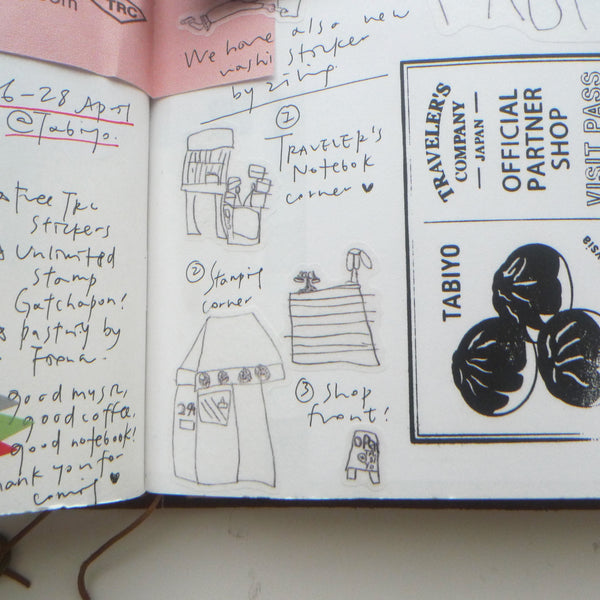 TRC
6-28 April
@Tabiyo.
Free TRC
Stickers
Unlimited
Stamp
Gatchapon!
pastry by
good music,
good coffee,
good notebook!
thank you for
coming ♥
We have also new
washi sticker
by
①
TRAVELER'S
Notebook
corner ♥
② Stamping
corner
29
③ Shop
front!
OPEN
TRAVELER'S
COMPANY
— JAPAN —
OFFICIAL
PARTNER
SHOP
VISIT PASS
TABIYO
ysia